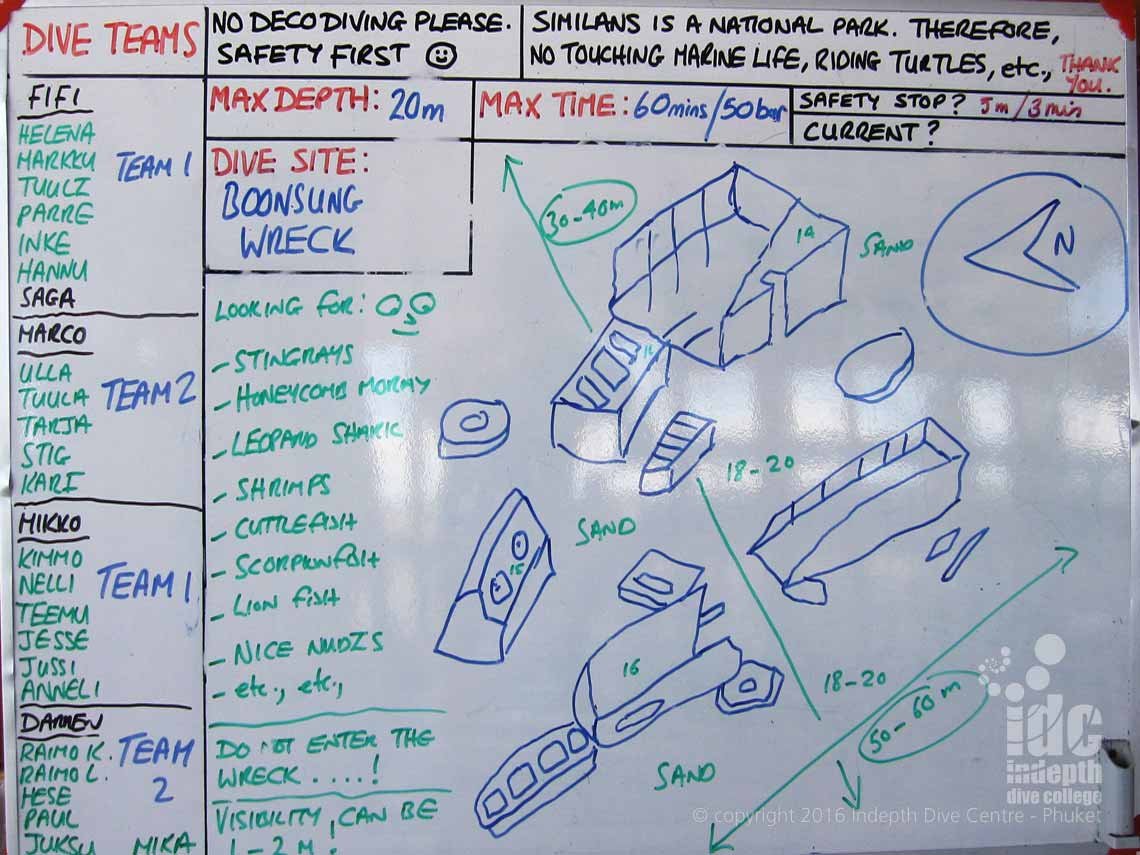 DIVE TEAMS
NO DECO DIVING PLEASE.
SAFETY FIRST
SIMILANS IS A NATIONAL PARK. THEREFORE,
NO TOUCHING MARINE LIFE, RIDING TURTLES, etc., THANK YOU.
MAX DEPTH: 20m
MAX TIME: 60mins/50bar
SAFETY STOP? 5m/3min
CURRENT?
FIFI
HELENA
MARKKU
TUULZ
PARRE
INKE
HANNU
SAGA
TEAM 1
MARCO
ULLA
TUULA
TARJA
STIG
KARI
TEAM 2
MIKKO
KIMMO
NELLI
TEEMU
JESSE
JUSSI
ANNELI
TEAM 1
DARREN
RAIMO K.
RAIMO L.
HESE
PAUL
JUKSU MIKA
TEAM 2
DIVE SITE:
BOONSUNG
WRECK
LOOKING FOR:
- STINGRAYS
- HONEYCOMB MORAY
- LEOPARD SHARK
- SHRIMPS
- CUTTLEFISH
- SCORPIONFISH
- LION FISH
- NICE NUDIS
- etc., etc.,
DO NOT ENTER THE
WRECK ....!
VISIBILITY, CAN BE
1-2 M.
30-40m
14
SAND
N
14
18-20
SAND
15
16
18-20
50-60m
SAND
idc
indepth
dive college
© copyright 2016 Indepth Dive Centre - Phuket